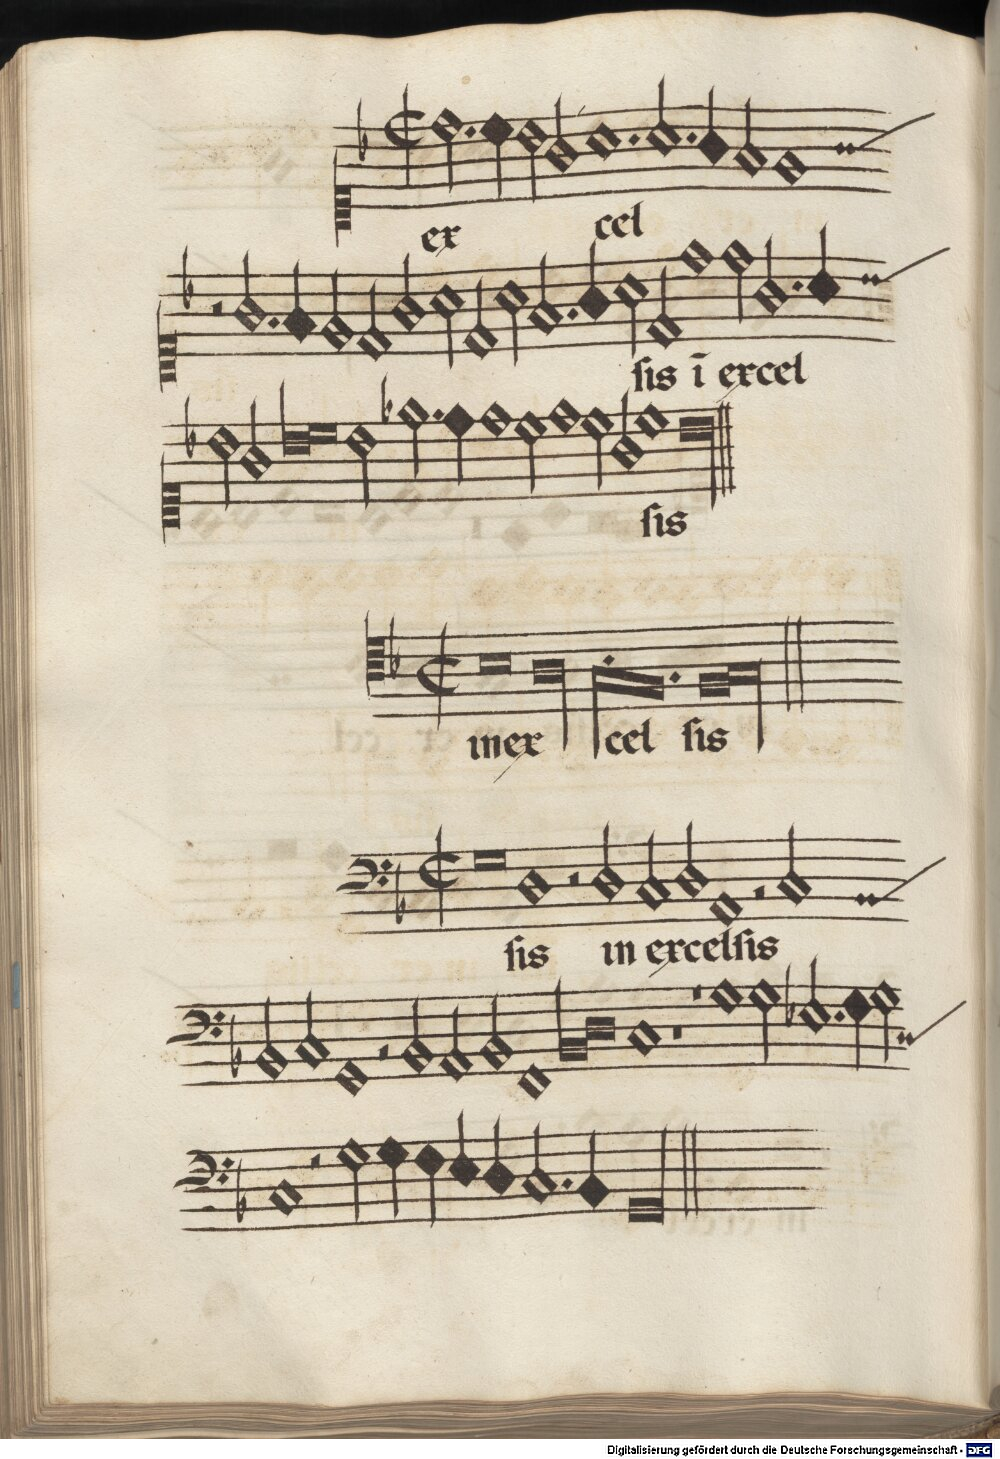 ex cel
sis ī excel
sis
in ex cel sis
sis in excelsis
Digitalisierung gefördert durch die Deutsche Forschungsgemeinschaft - DFG